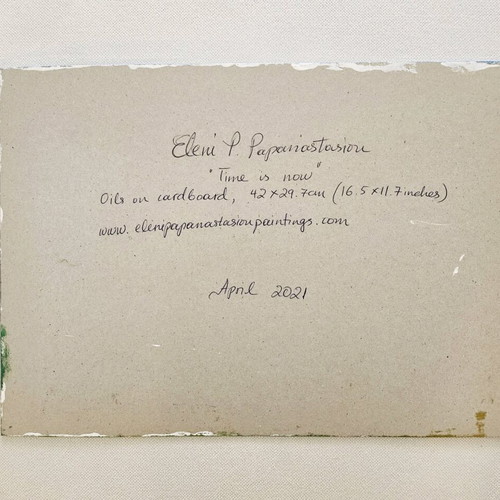 Eleni P. Papanastasiou
"Time is now"
Oils on cardboard, 42 x 29.7cm (16.5 x 11.7 inches)
www.elenipapanastasioupaintings.com
April 2021